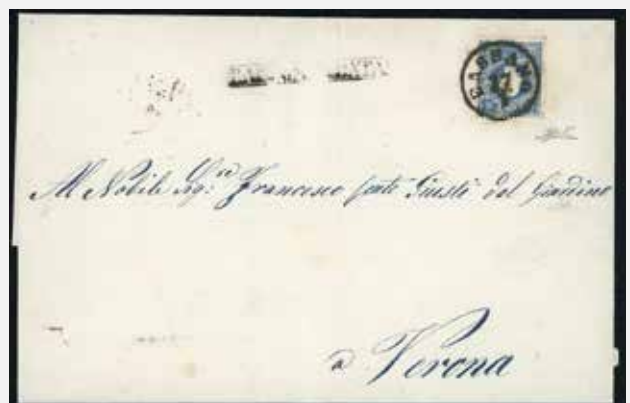 BASSANO
17
Al Nobile Sigr Francesco Conte Giusti del Giardino
a Verona